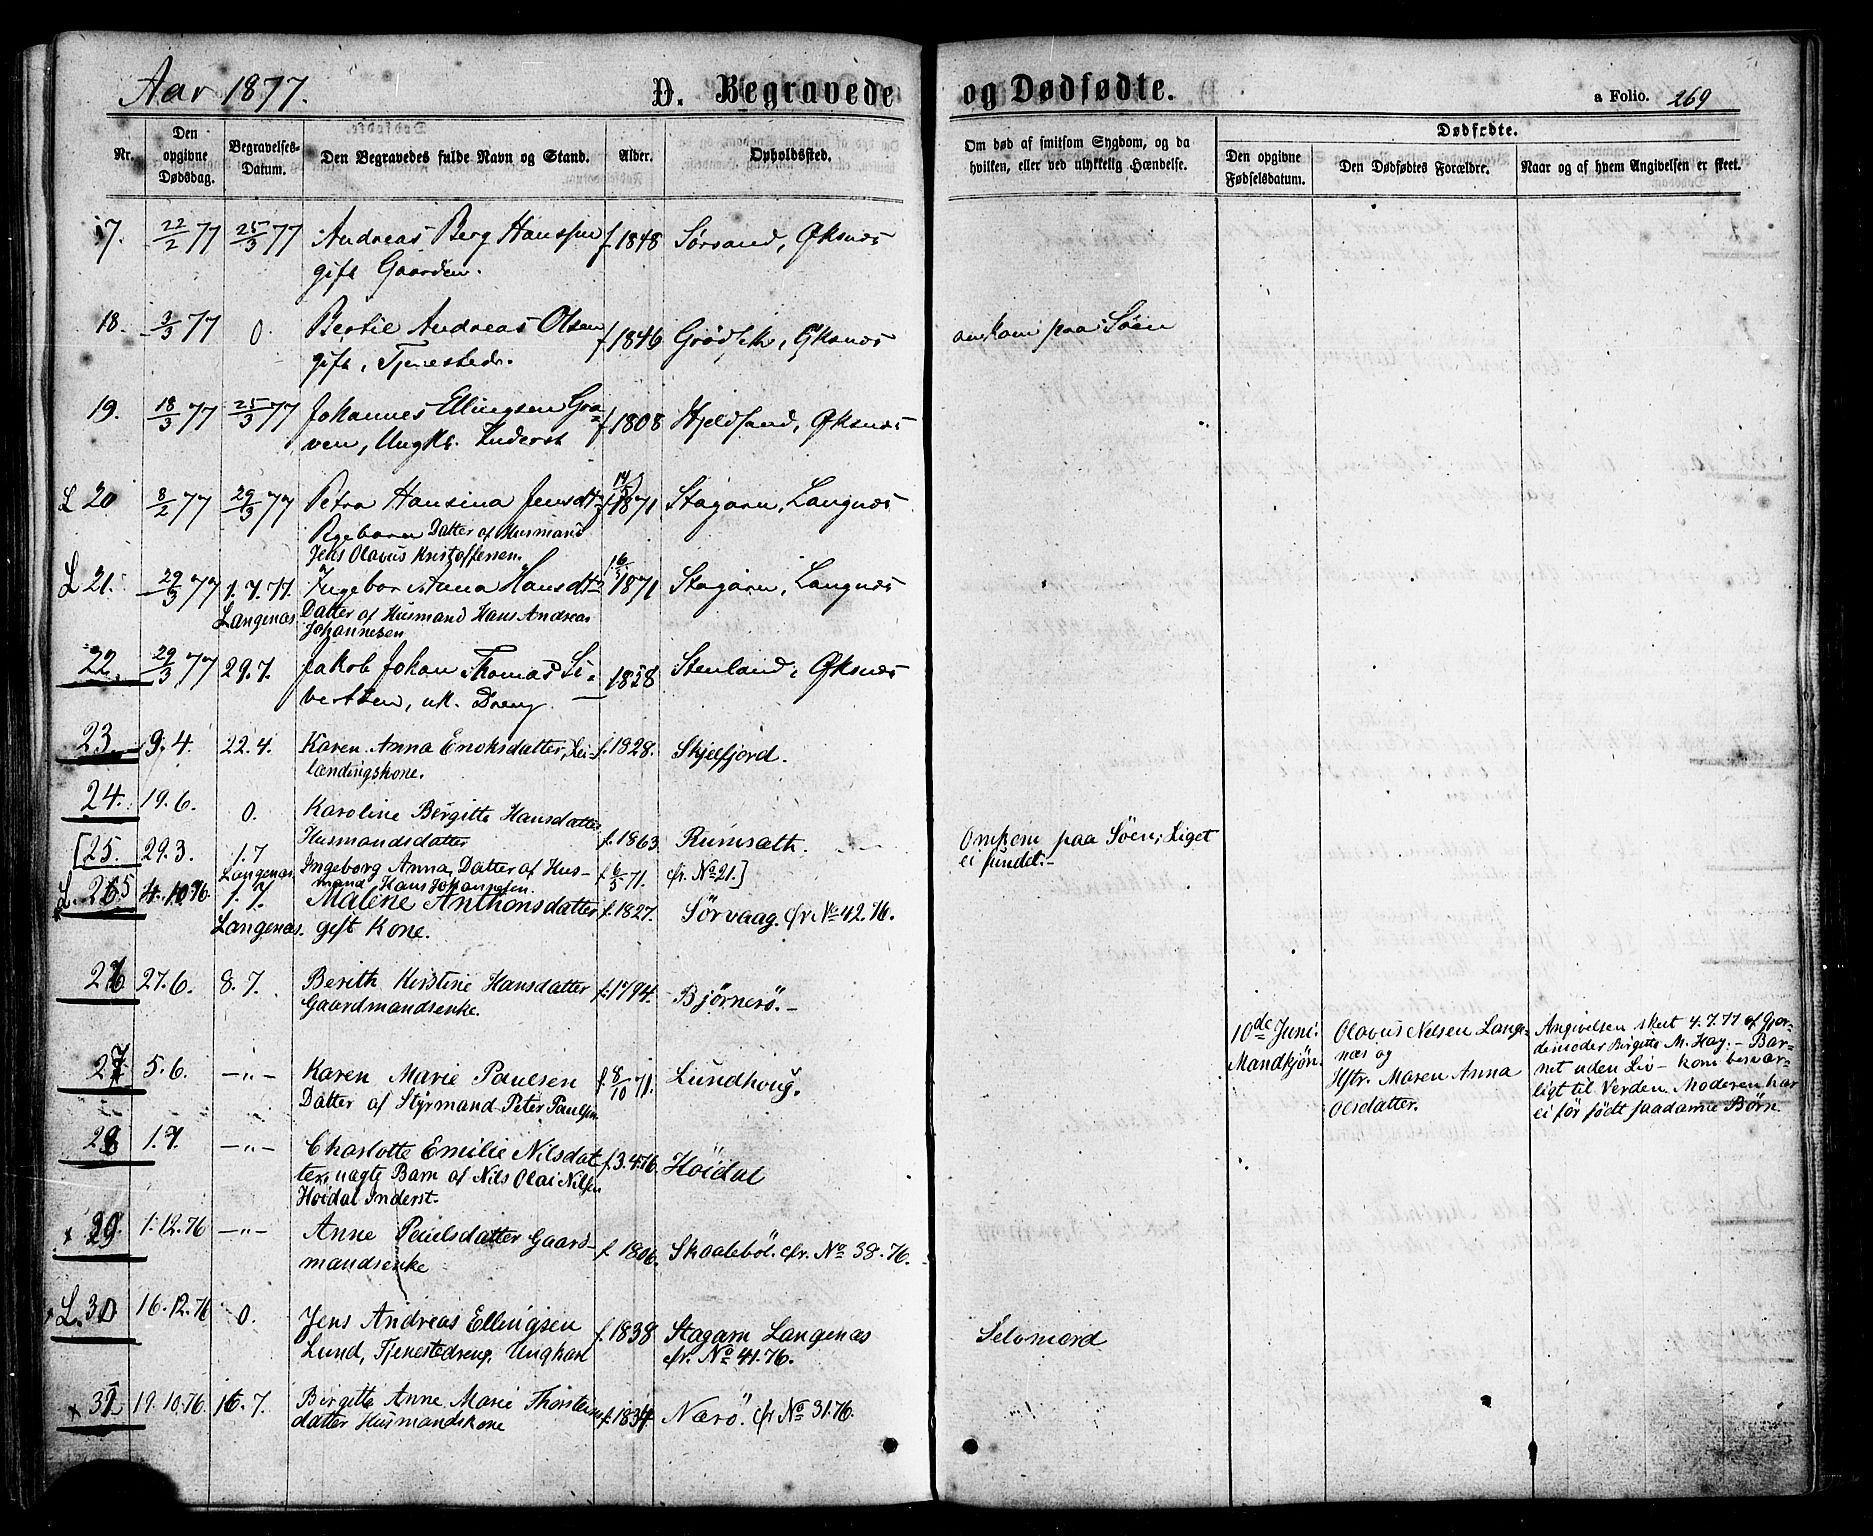 Aar 1877.
D. Begravede og Dødfødte.
a Folio. 269
Nr.
Den opgivne Dødsdag.
Begravelses-Datum.
Den Begravedes fulde Navn og Stand.
Alder.
Opholdsted.
Om død af smitsom Sygdom, og da hvilken, eller ved ulykkelig Hændelse.
Dødfødte.
Den opgivne Fødselsdatum.
Den Dødfødtes Forældre.
Naar og af hvem Angivelsen er skeet.
17. 22/2 77 25/3 77 Andreas Berg Hanssen f. 1848 Sørsand, Øksnes
gift Gaardm.
18. 3/3 77 0 Bertil Andreas Olsen f 1846 Øksnes omkom paa Søen
gift, Tjenestedr.
19. 18/3 77 25/3 77 Johannes Ellingsen Gra= f 1808 Kjeldsand, Øksnes
ven, Ungk. Inderst
L 20 8/2 77 29/3 77 Petra Hansina Jensdtr 1871 Stagarn, Langnes
Pigebarn Datter af Husmand
Jens Olavus Kristoffersen.
L 21. 29/3 77 1.7.77. Ingebor Anna Hansdtr 1871 Stagarn, Langnes
Langenæs Datter af Husmand Hans Andreas
Johannesen
22. 29/3 77 29.7. Jakob Johan Thomas Si= 1858 Stenland, Øksnes
vertsen, uk. Dreng.
23. 9.4. 22.4. Karen Anna Enoksdatter, Lei- f. 1828. Skjelfjord.
lændingskone.
24. 19.6. 0. Karoline Bergitte Hansdatter
Husmandsdatter f. 1863. Rumsæth. Omkom paa Søen; Liget
ei fundet.-
[25. 29.3. 1.7 Langenæs Ingeborg Anna, Datter af Hus- f 6/5 71. cfr. No 21.]
mand Hans Johannesen.
L. 265 4.10.76. 1.7. Malene Anthonsdatter f. 1827. Sørvaag. cfr. No 42.76.
Langenæs. gift Kone.
26 27.6. 8.7. Berith Kerstine Hansdatter f. 1794. Bjørnerö.-
Gaardmandsenke.
10de Juni. Mandkjøn.
Olavus Nelsen Lange-
næs og
Hstr. Maren Anna
Olsdatter.
Angivelsen skeet 4.7.77 af Gjor-
demoder Birgitte M. Hay.- Bar-
net uden Liv- kom besvær-
ligt til Verden. Moderen har
ei för födt saadanne Børn.
27 5.6. -"- Karen Marie Paulsen f. 8/10 71. Lundhoug.
Datter af Styrmand Peter Paulsen
28 1.7. -"- Charlotte Emilie Nilsdat- f. 3.4.76. Høidal
ter, uægte Barn af Nils Olai Nilsen
Høidal Inderst.
x 29. 1.12.76 -"- Anne Paulsdatter Gaard- f. 1806. Skaalebøl. cfr. No 38.76.
mandsenke
L. 30 16.12.76 0. Jens Andreas Ellingsen f. 1838. Stagarn Langenæs Selvmord
Lund, Tjenestedreng, Ungkarl cfr. No 41.76.
x 31 19.10.76. 16.7. Birgitte Anne Marie Thorsteins f. 1834. Nærö. cfr No 31.76.
datter Husmandskone